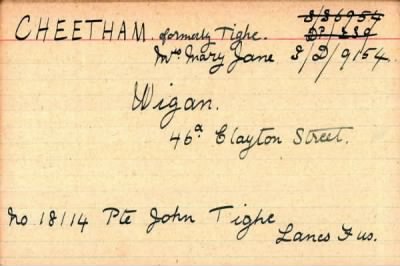 CHEETHAM. formerly Tighe. S/S6954
D°/239
Mrs Mary Jane S/D/9154.
Wigan.
46a Clayton Street.
No 18114 Pte John Tighe
Lancs Fus.